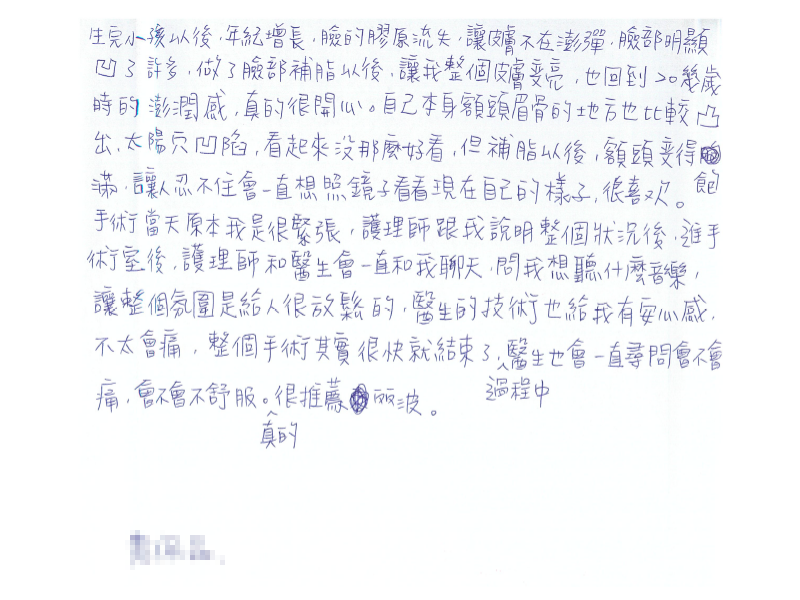 生完小孩以後，年紀增長，臉的膠原流失，讓皮膚不在澎彈，臉部明顯
凹了許多，做了臉部補脂以後，讓我整個皮膚变亮，也回到20幾歲
時的澎潤感，真的很開心。自己本身額頭眉骨的地方也比較凸
出，太陽穴凹陷，看起來沒那麼好看，但補脂以後，額頭变得飽
滿，讓人忍不住會一直想照鏡子看看現在自己的樣子，很喜欢。
手術當天原本我是很緊張，護理師跟我說明整個狀況後，進手
術室後，護理師和醫生會一直和我聊天，問我想聽什麼音樂，
讓整個氛圍是給人很放鬆的，醫生的技術也給我有安心感，
不太會痛，整個手術其實很快就結束了，過程中醫生也會一直尋問會不會
痛，會不會不舒服。真的很推薦丽波。